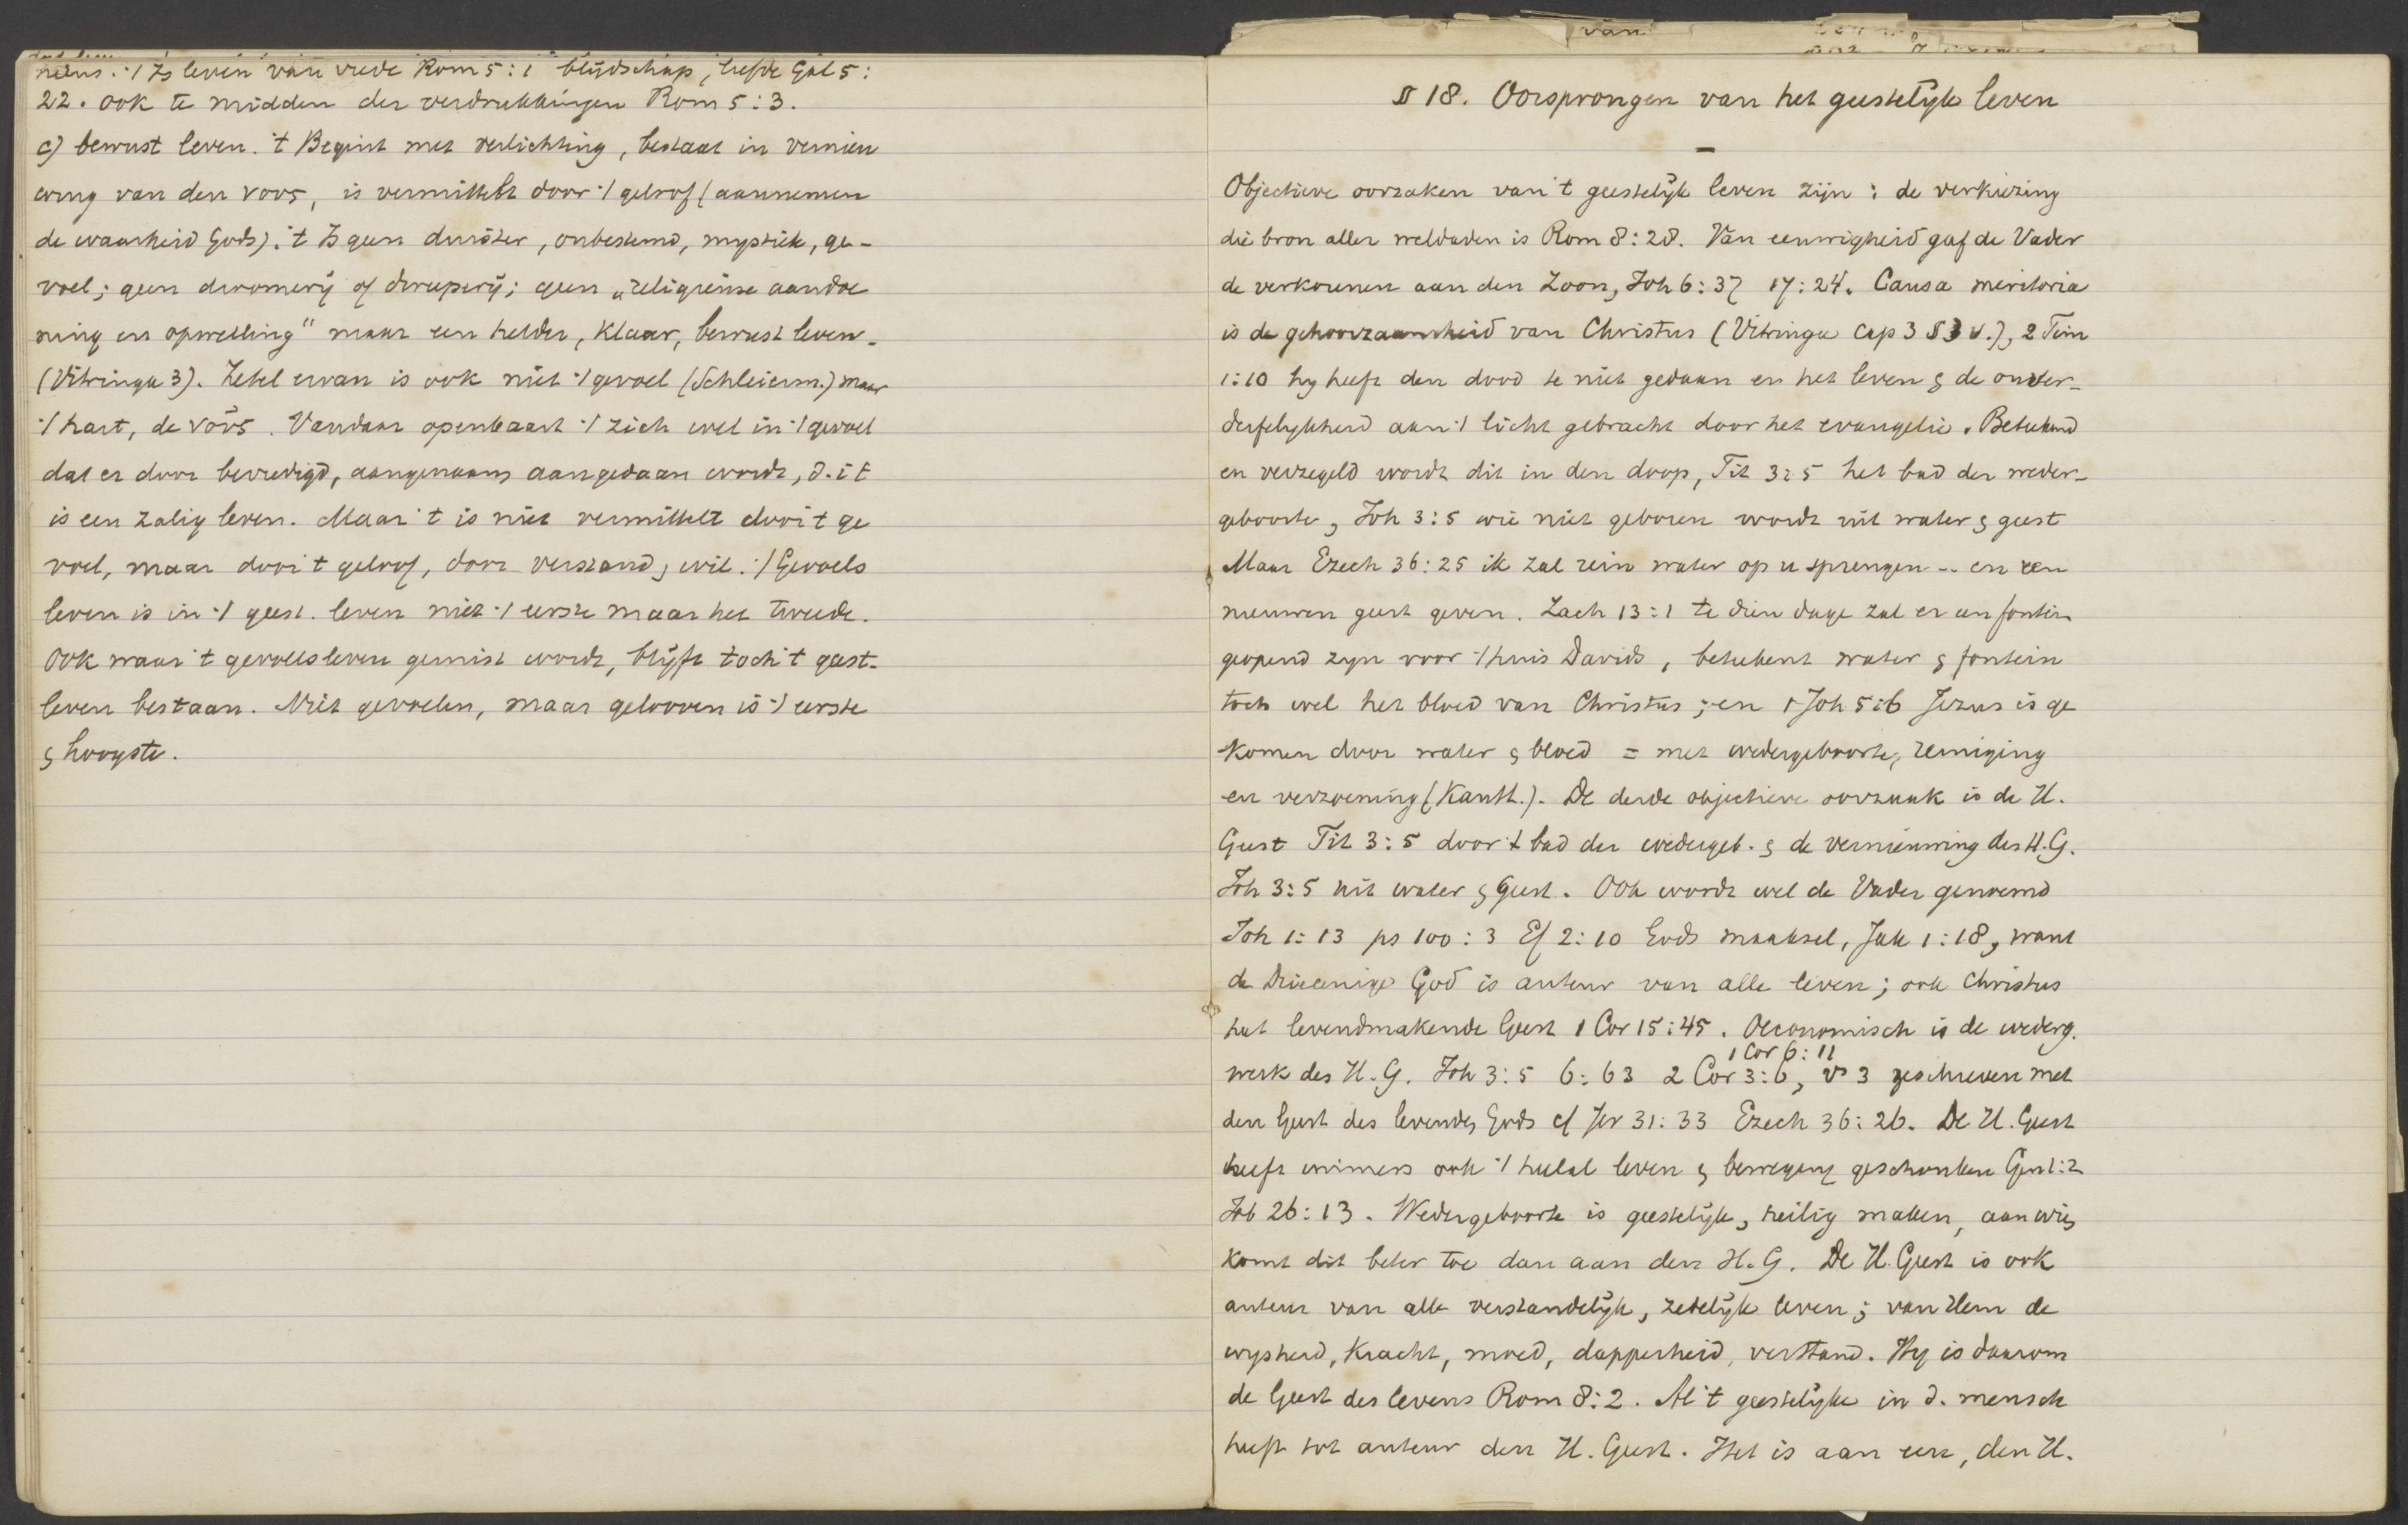 't Is leven van vrede Rom 5:1 blijdschap, liefde Gal 5:
22. ook te midden der verdrukkingen Rom 5:3.
c) bewust leven. 't Begint met verlichting, bestaat in vernieu
wing van den νους, is vermittelt door 't geloof (aannemen
de waarheid Gods). 't Is geen duister, onbestemd, mystiek, ge-
voel; geen droomerij of dweperij; geen „religieuse aandoe
ning en opwelling" maar een helder, klaar, bewust leven.
(Vitringa 3). Zetel ervan is ook niet 't gevoel (Schleierm.) maar
't hart, de νους. Vandaar openbaart 't zich wel in 't gevoel
dat er door bevredigd, aangenaam aangedaan wordt, d. i t
is een zalig leven. Maar 't is niet vermittelt door 't ge
voel, maar door 't geloof, door verstand, wil. 't Gevoels
leven is in 't geest. leven niet 't eerste maar het tweede.
Ook waar 't gevoelsleven gemist wordt, blijft toch 't geest-
leven bestaan. Niet gevoelen, maar gelooven is 't eerste
& hoogste.
van
§ 18. Oorsprongen van het geestelijk leven
Objectieve oorzaken van 't geestelijk leven zijn: de verkiezing
die bron aller weldaden is Rom 8:28. Van eeuwigheid gaf de Vader
de verkorenen aan den Zoon, Joh 6:37 17:24. Causa meritoria
is de gehoorzaamheid van Christus (Vitringa Cap 3 § 3 v.), 2 Tim
1:10 hy heeft den dood te niet gedaan en het leven & de onver-
derfelykheid aan 't licht gebracht door het evangelie. Betekend
en verzegeld wordt dit in den doop, Tit 3:5 het bad der weder-
geboorte, Joh 3:5 wie niet geboren wordt uit water & geest
Maar Ezech 36:25 ik zal rein water op u sprengen .. en een
nieuwen geest geven. Zach 13:1 te dien dage zal er een fontein
geopend zyn voor 't huis Davids, betekent water & fontein
toch wel het bloed van Christus; en 1 Joh 5:6 Jezus is ge
komen door water & bloed = met wedergeboorte, reiniging
en verzoening (Kantt.). De derde objectieve oorzaak is de H.
Geest Tit 3:5 door 't bad der wedergeb. & de vernieuwing des H.G.
Joh 3:5 uit water & Geest. Ook wordt wel de Vader genoemd
Joh 1:13 ps 100:3 Ef 2:10 Gods maaksel, Jak 1:18, want
de Drieenige God is auteur van alle leven; ook Christus
het levendmakende Geest 1 Cor 15:45. Oeconomisch is de wederg.
1 Cor 6:11
werk des H.G. Joh 3:5 6:63 2 Cor 3:6, vs 3 geschreven met
den Geest des levenden Gods cf Jer 31:33 Ezech 36:26. De H. Geest
heeft immers ook 't heelal leven & beweging geschonken Gen 1:2
Job 26:13. Wedergeboorte is geestelijk, heilig maken, aan wien
komt dit beter toe dan aan den H.G. De H. Geest is ook
auteur van alle verstandelijk, zedelijk leven; van Hem de
wysheid, kracht, moed, dapperheid, verstand. Hy is daarom
de Geest des levens Rom 8:2. Al 't geestelijke in d. mensch
heeft tot auteur den H. Geest. Het is aan een, den H.